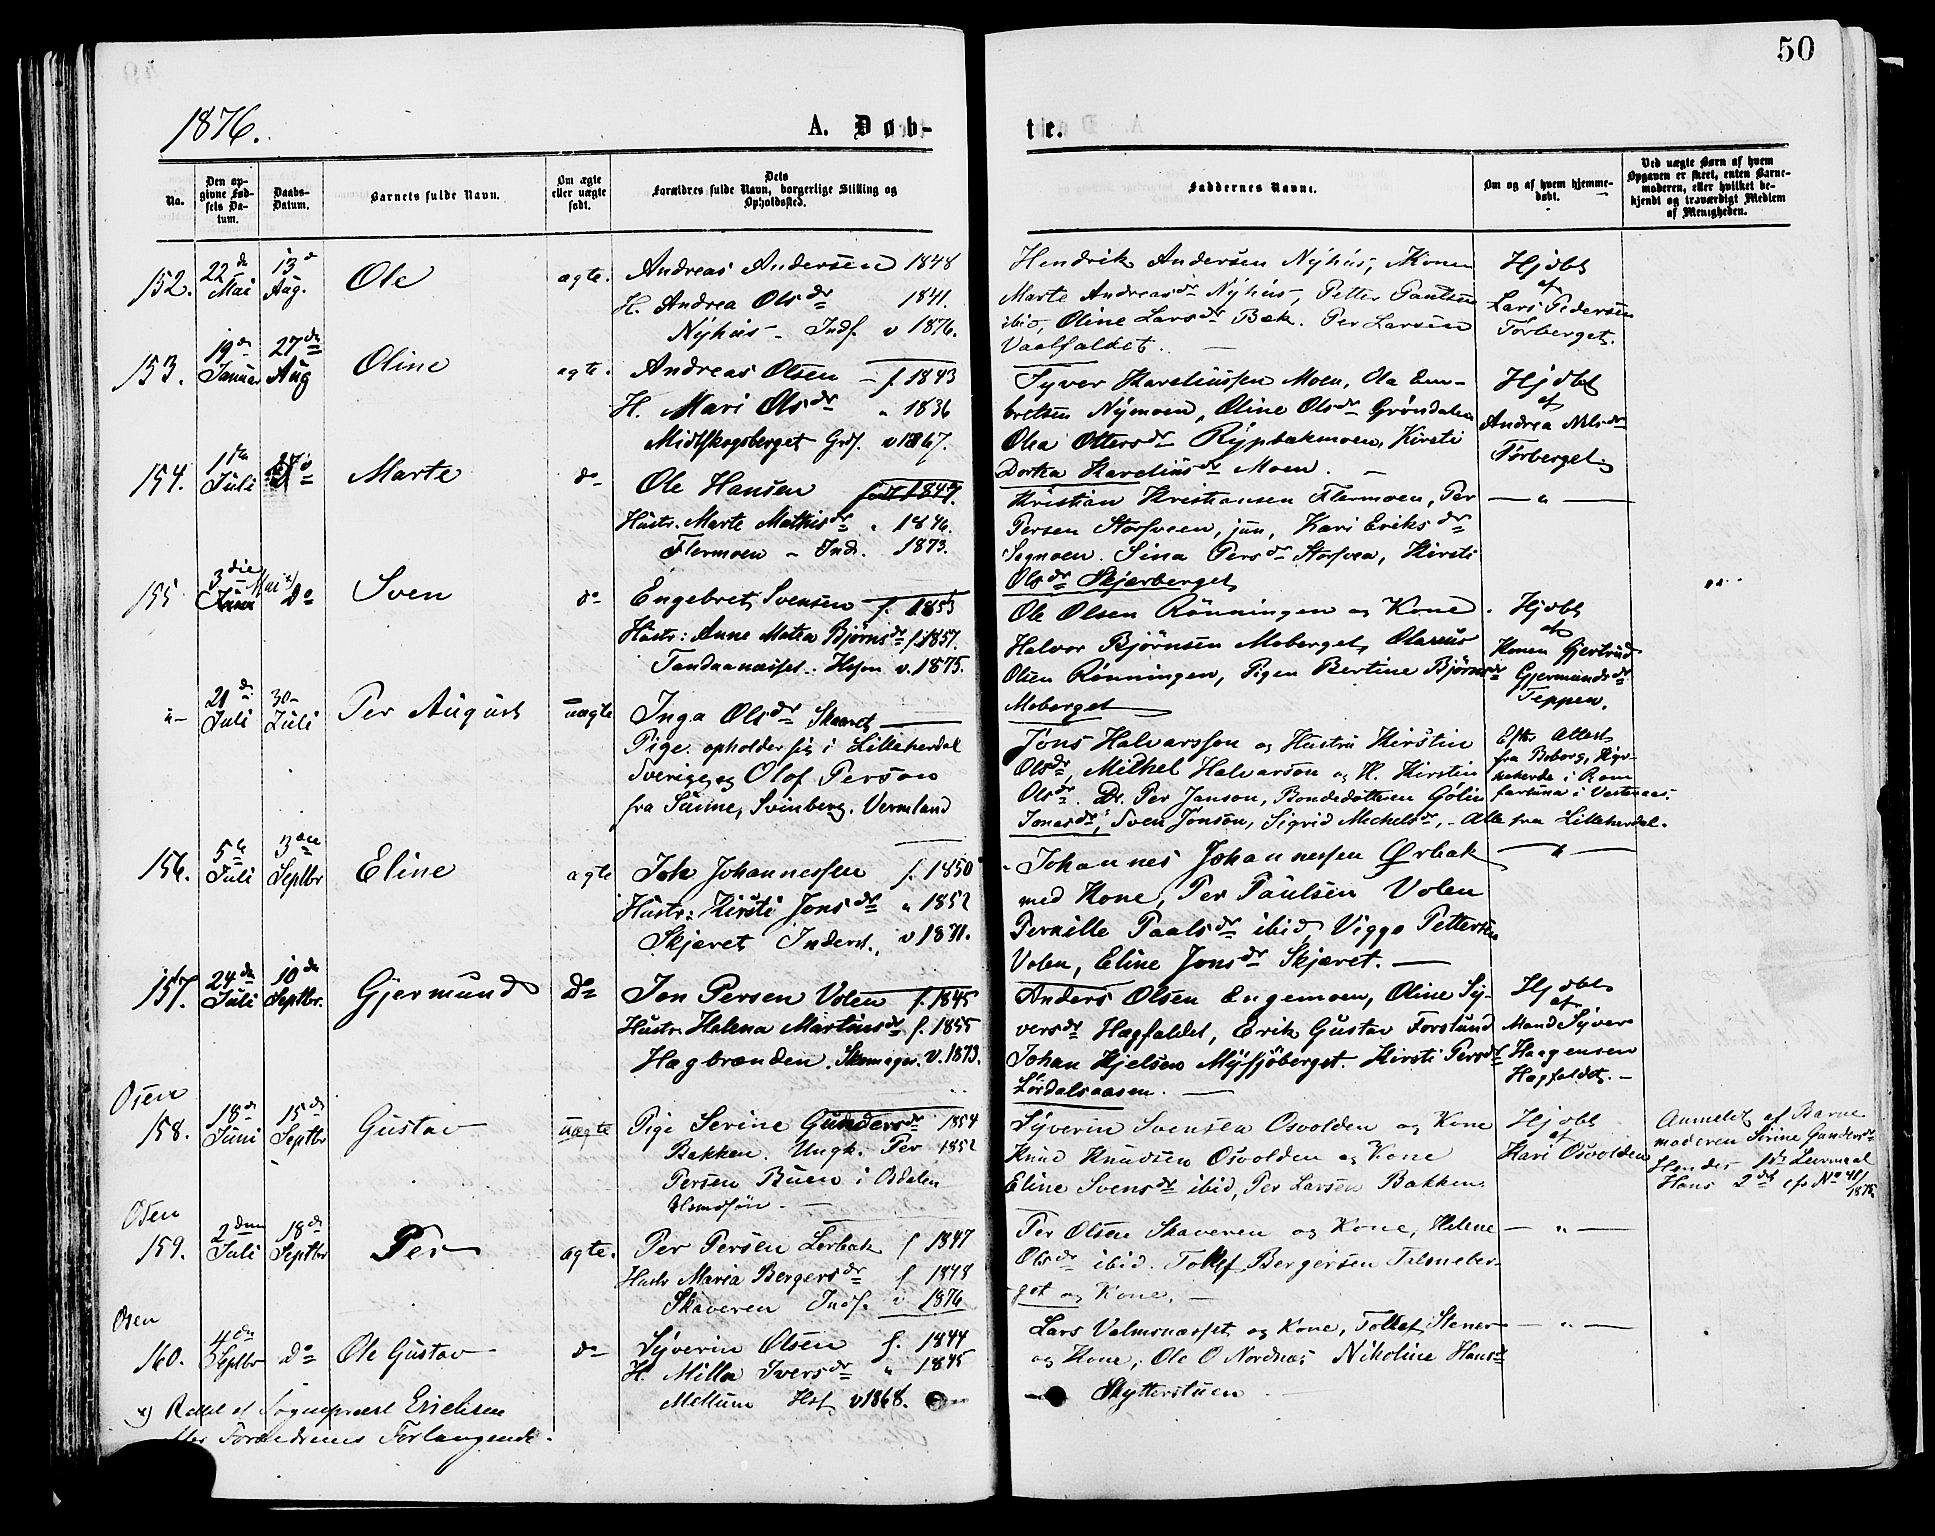 50
1876.
A. Døb-
te.
No.
Den op-
givne Fød-
sels Da-
tum.
Daabs-
Datum.
Barnets fulde Navn.
Om ægte
eller uægte
født.
Dets
Forældres fulde Navn, borgerlige Stilling og
Opholdssted.
Faddernes Navne.
Om og af hvem hjemme-
døbt.
Ved uægte Børn af hvem
Opgaven er skeet, enten Barne-
moderen, eller hvilket be-
kjendt og troværdigt Medlem
af Menigheden.
152.
22de
Mai
13de
Aug.
Ole
ægte.
Andreas Andersen 1848
H. Andrea Olsdr 1841.
Nyhus - Indf. v 1876.
Hendrik Andersen Nyhus, Kone
Marte Andreasdr Nyhus, Petter Paulsen
ibid, Oline Larsdr Bæk. Per Larsen
Vaalfaldet.
Hjdbt
af
Lars Pedersen
Tørberget.
153.
19de
Januar
27de
Aug
Oline
ægte.
Andreas Olsen f. 1843
H. Mari Olsdr " 1836
Midtskogsberget Grdf. v 1867.
Syver Kareliussen Moen, Ola Em-
bretsen Nymoen, Oline Olsdr Grøndalen
Olea Ottersdr Rypbækmoen, Kirsti
Dortea Kareliusdr Moen.
Hjdbt
af
Andrea Nilsdr
Tørberget.
154.
1ste
Juli
Do
Marte
do
Ole Hansen født 1847.
Hustr. Marte Mathisdr " 1846.
Flermoen - Inds. 1873.
Kristian Kristiansen Flermoen, Per
Persen Storsveen, jun, Kari Eriksdr
Segnoen. Sina Persdr Storsveen, Kirsti
Olsdr Skjærberget
"
155
3die
Juni Mai x)
Do
Sven
do
Engebret Svensen f. 1853
Hustr: Anne Matea Bjørnsdr f. 1857.
Tandaanæsset. Hsfm v. 1875.
Ole Olsen Rønningen og Kone.
Halvor Bjørnsen Moberget, Olaus
Olsen Rønningen, Pigen Bertine Bjørnsdr
Moberget
Hjdbt
af
Konen Gjertrud
Gjermundsdr
Teppen.
u-
21de
Juli
30-
Juli
Per August
uægte
Inga Olsdr Skaaret
Pige opholder sig i Lilleherdal
Sverige, og Olof Person
fra Sunne, Svinberg. Vermland
Jons Halvarsson og Hustru Kirstin
Olsdr, Mikkel Halvarson og H. Kirstin
Olsdr. Dr. Per Janson, Bondedotteren Gølin
Jonasdr, Sven Jonson, Sigrid Mickelsdr, - Alle fra Lilleherdal.
Efter Attest
fra Boberg, Kyr-
koherde i Rom
fartuna i Vesteraas.
156.
5te
Juli
3die
Septbr
Eline
ægte
Joh Johannessen f. 1850
Hustr: Kirsti Jonsdr " 1852
Skjæret Inderst. v 1871.
Johannes Johannessen Ørbæk
med Kone, Per Paulsen Volen
Pernille Paalsdr ibid, Viggo Pettersen
Volen, Eline Jonsdr Skjæret.
"
157.
24de
Juli
10de
Septbr.
Gjermund
Do
Jon Persen Volen f. 1845
Hustr. Helena Martinsdr f. 1855
Hagbrænden. Skomager. v. 1873.
Anders Olsen Engemoen, Oline Sy-
versdr Hagfaldet, Erik Gustav Forslund
Johan Kjelsen Mysjøberget. Kirsti Persdr
Lørdalsaasen.
Hjdbt
af
Mand Syver
Haagensen
Hagfaldet.
Osen
158.
18de
Juni
15de
Septbr
Gustav
uægte
Pige Serine Gundersdr 1854
Bakken. Ungk. Per 1852
Persen Buen i Osdalen
Aamodssøn.
Syverin Svensen Osvolden og Kone
Knud Knudsen Osvolden og Kone
Eline Svensdr ibid, Per Larsen Bakken.
Hjdbt
af
Kari Osvolden
Anmeldt af Barne
moderen Serine Gundersdr
Hendes 1ste Leiermaal
Hans 2det cfr No 41/
1875
Osen
159.
2den
Juli
18de
Septbr
Per
ægte.
Per Persen Lerbæk f 1847
Hustr Maria Bergersdr f 1848
Skaveren Indf. v 1876
Per Olsen Skaveren og Kone, Helene
Olsdr ibid. Tollef Bergersen Julsneber-
get og Kone,
"
Osen
160.
4de
Septbr
Do
Ole Gustav
do
Syverin Olsen f. 1844
H. Milla Iversdr " 1845
Mellum Hsf v 1868.
Lars Valmsnæsset og Kone, Tollef Stener
og Kone, Ole O Nordnæs, Nikoline Hansdr
Skytterstuen
"
x) Rettet af Sogneprest Erichsen
efter Forældrenes Forlangende.